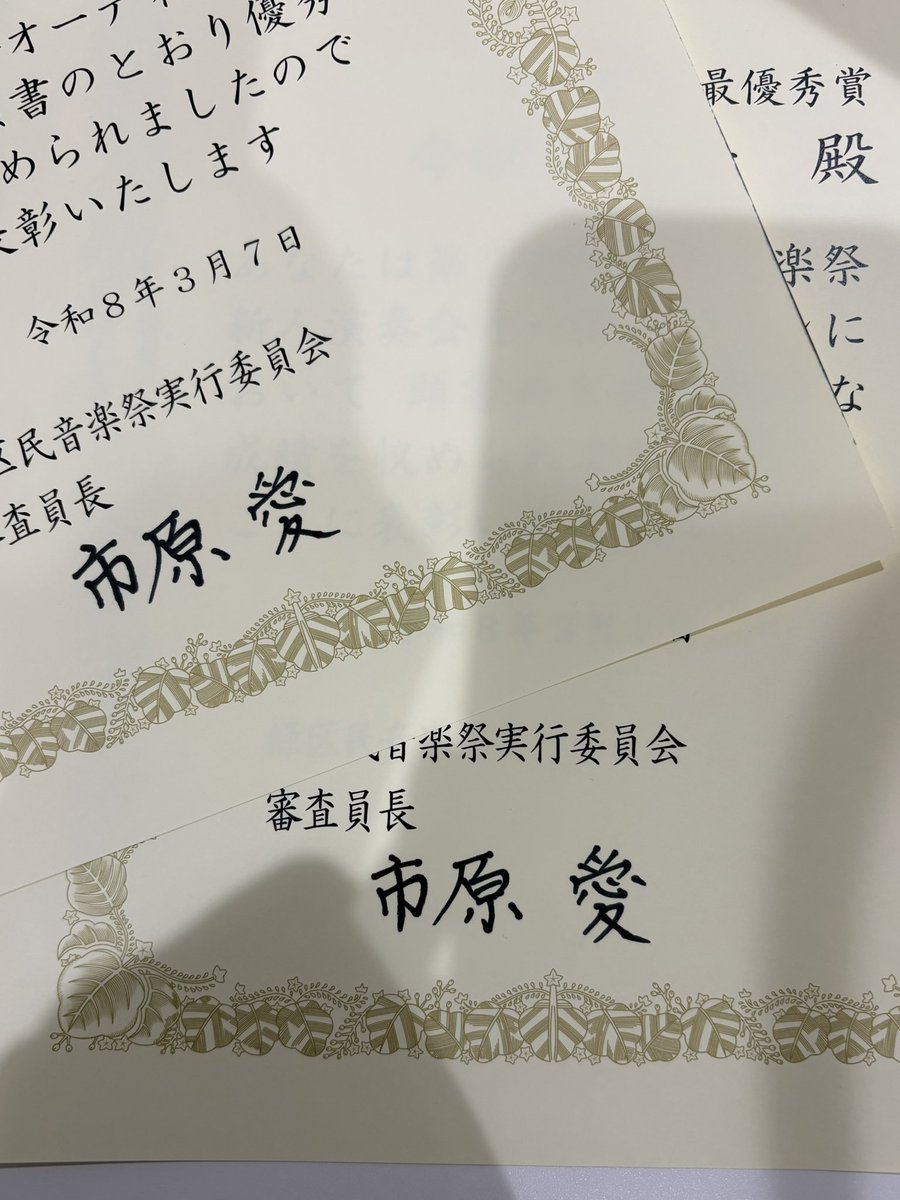 オーディ
書のとおり優秀
められましたので
表彰いたします
令和8年3月7日
区民音楽祭実行委員会
査員長
市原 愛
最優秀賞
殿
楽祭
に
な
音楽祭実行委員会
審査員長
市原 愛